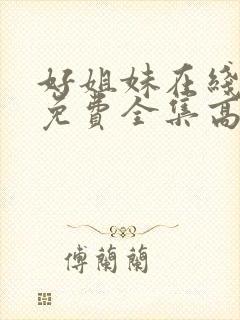 好姐妹在綫
免費全集高
傅蘭蘭